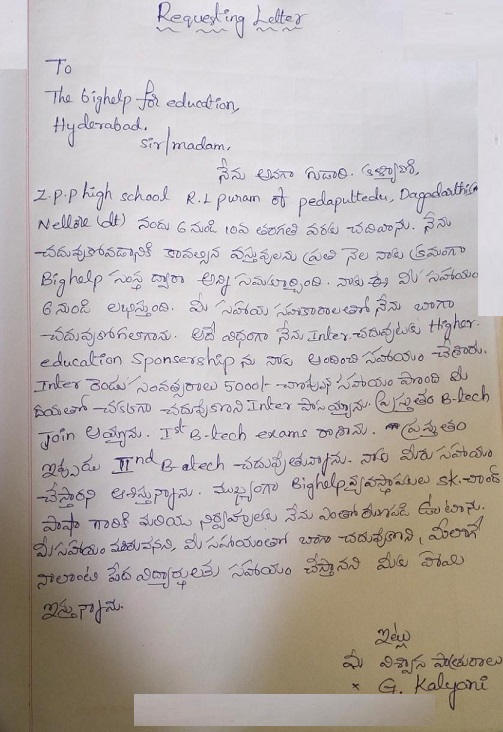 Requesting Letter
To
The bighelp for education,
Hyderabad.
sir/madam,
నేను అనగా గుడారి. కళ్యాణి,
Z.p.p high school R.L puram of pedaputtedu, Dagadarthi
Nellore (dt) నందు 6 నుండి 10వ తరగతి వరకు చదివాను. నేను
చదువుకోవడానికి కావల్సిన వస్తువులను ప్రతి నెల నాకు క్రమంగా
Bighelp సంస్థ ద్వారా అన్ని సమకూర్చింది. నాకు ఈ మీ సహాయం
6 నుండి లభిస్తుంది. మీ సహాయ సహకారాలతో నేను బాగా
చదువుకోగలిగాను. అదే విధంగా నేను Inter చదువుటకు Higher-
education Sponsership ను నాకు అందించి సహాయం చేశారు.
Inter రెండు సంవత్సరాలు 5000/- చొప్పున సహాయం పొంది మీ
దయతో చక్కగా చదువుకొని Inter పాసయ్యాను. ప్రస్తుతం B-tech
join అయ్యాను. Ist B-tech exams రాశాను. ప్రస్తుతం
ఇప్పుడు IInd B-tech చదువుతున్నాను. నాకు మీరు సహాయం
చేస్తారని ఆశిస్తున్నాను. ముఖ్యంగా Bighelp వ్యవస్థాపకులు sk.చాంద్
పాషా గారికి మరియు నిర్వహకులకు నేను ఎంతో రుణపడి ఉంటాను.
మీ సహాయం మరువనని, మీ సహాయంతో బాగా చదువుకొని, మీలాగే
నాలాంటి పేద విద్యార్థులకు సహాయం చేస్తానని మీకు హామి
ఇస్తున్నాను.
ఇట్లు
మీ విశ్వాస పాత్రురాలు
G. Kalyani